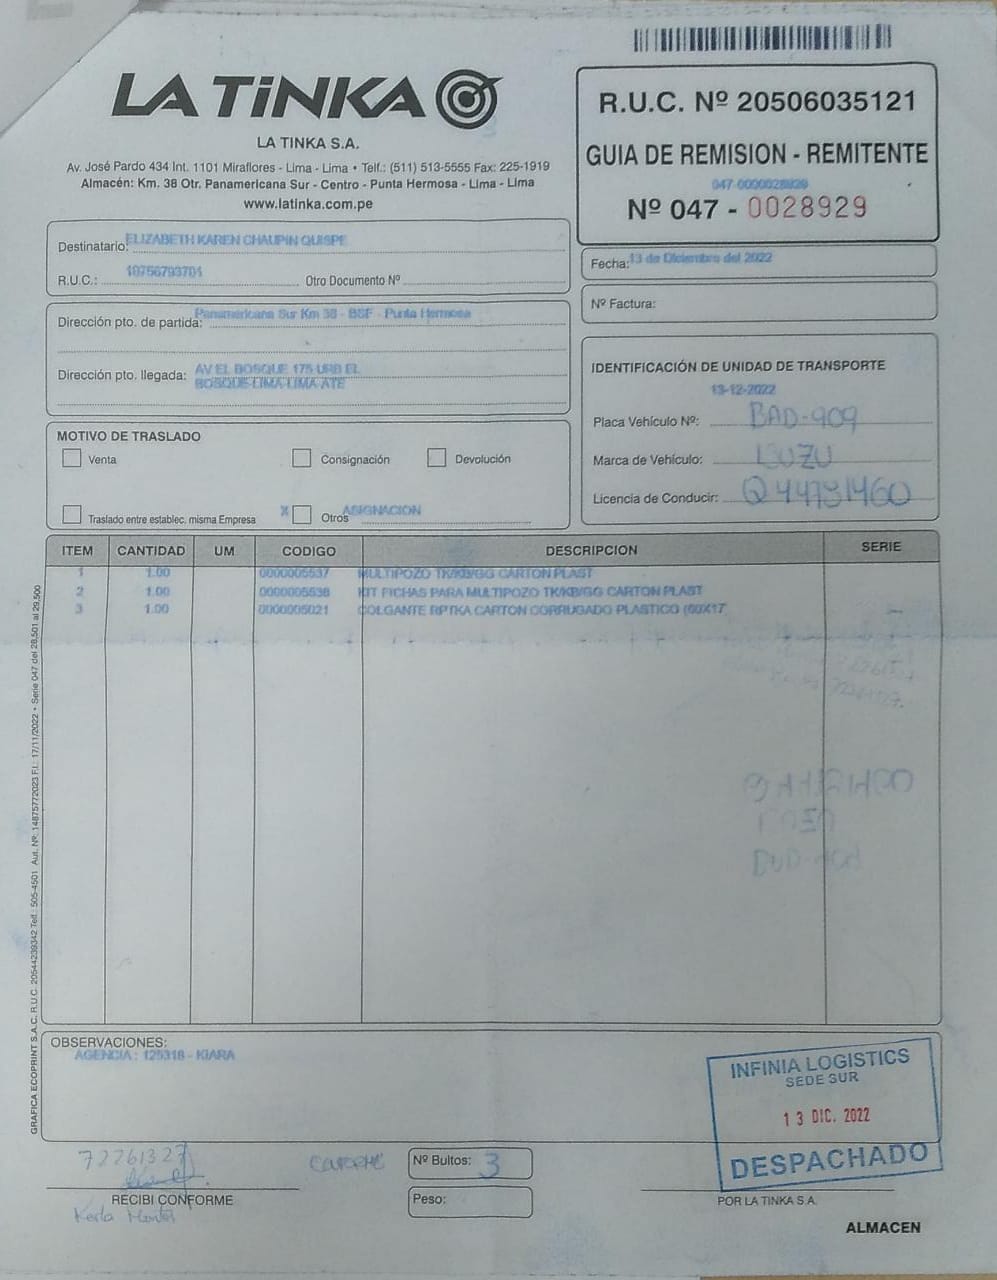 LA TiNKA
LA TINKA S.A.
Av. José Pardo 434 Int. 1101 Miraflores - Lima - Lima • Telf.: (511) 513-5555 Fax: 225-1919
Almacén: Km. 38 Otr. Panamericana Sur - Centro - Punta Hermosa - Lima - Lima
www.latinka.com.pe
R.U.C. Nº 20506035121
GUIA DE REMISION - REMITENTE
047-0000028929
Nº 047 - 0028929
Destinatario: ELIZABETH KAREN CHAUPIN QUISPE
R.U.C.: 10756793701 Otro Documento Nº
Fecha: 13 de Diciembre del 2022
Nº Factura:
Dirección pto. de partida: Panamericana Sur Km 38 - BSF - Punta Hermosa
Dirección pto. llegada: AV EL BOSQUE 175 URB EL
BOSQUE-LIMA-LIMA-ATE
IDENTIFICACIÓN DE UNIDAD DE TRANSPORTE
13-12-2022
Placa Vehículo Nº: BAD-909
Marca de Vehículo: ISUZU
Licencia de Conducir: Q44731460
MOTIVO DE TRASLADO
Venta Consignación Devolución
Traslado entre establec. misma Empresa X Otros ASIGNACION
ITEM CANTIDAD UM CODIGO DESCRIPCION SERIE
1 1.00 0000005537 MULTIPOZO TK/KB/GG CARTON PLAST
2 1.00 0000005538 KIT FICHAS PARA MULTIPOZO TK/KB/GG CARTON PLAST
3 1.00 0000005021 COLGANTE RPTKA CARTON CORRUGADO PLASTICO (60X17
GRAFICA ECOPRINT S.A.C. R.U.C. 20544239342 Telf.: 505-4501 Aut. Nº: 14875772023 F.I.: 17/11/2022 • Serie 047 del 28,501 al 29,500
OBSERVACIONES:
AGENCIA : 125318 - KIARA
INFINIA LOGISTICS
SEDE SUR
13 DIC. 2022
DESPACHADO
72261327
Nº Bultos: 3
Peso:
RECIBI CONFORME
Karla
POR LA TINKA S.A.
ALMACEN